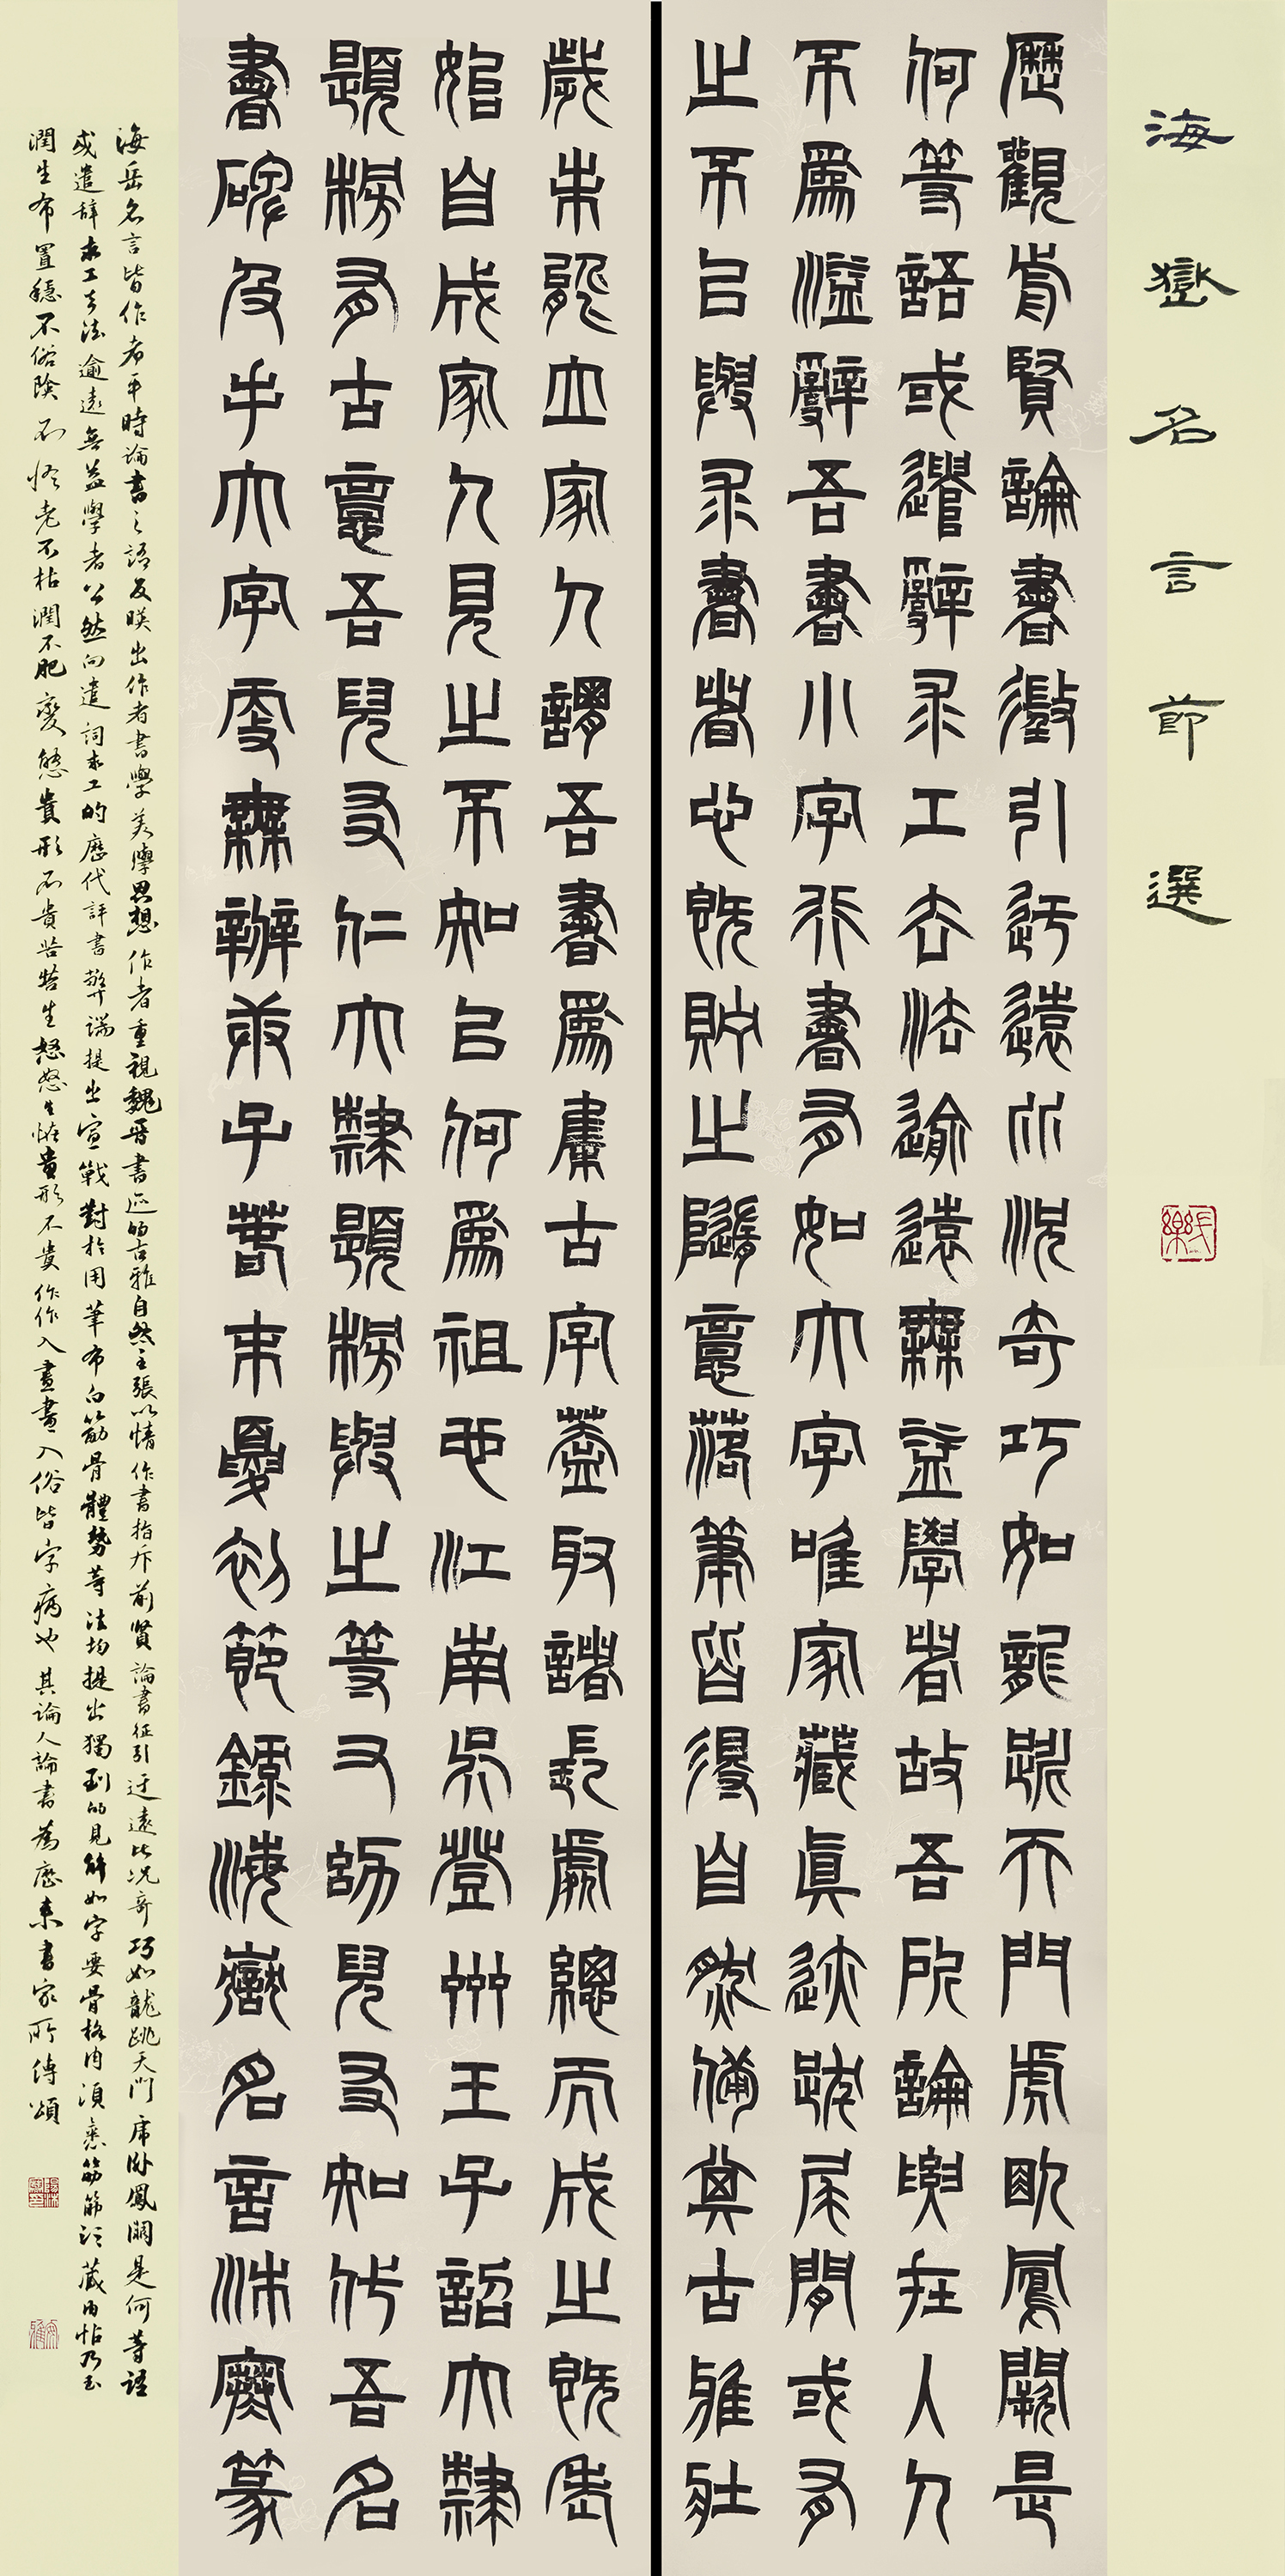 海嶽名言節選
歷觀前賢論書徵引迂遠比況奇巧如龍跳天門虎臥鳳闕是
何等語或遣辭求工去法逾遠無益學者故吾所論要在入人
不爲溢辭吾書小字行書有如大字唯家藏真跡跋尾間或有
之不以與求書者心既貯之隨意落筆皆得自然備其古雅壯
歲未能立家人謂吾書爲集古字蓋取諸長處總而成之既老
始自成家人見之不知以何爲祖也江南吳登州王子韶大隸
題榜有古意吾兒友仁大隸題榜與之等又幼兒友知代吾名
書碑及手大字更無辨癸巳春末夏初節錄海嶽名言沛篆
海岳名言皆作者平時論書之語反映出作者書學美學思想作者重視魏晉書跡的古雅自然主張以情作書指斥前賢論書征引迂遠比況奇巧如龍跳天門虎臥鳳闕是何等語
或遣辭求工去法逾遠無益學者公然向遣詞求工的歷代評書弊端提出宣戰對於用筆布白筋骨體勢等法均提出獨到的見解如字要骨格肉須裹筋筋須藏肉帖乃秀
潤生布置穩不俗險不怪老不枯潤不肥變態貴形不貴苦苦生怒怒生怪貴形不貴作作入畫畫入俗皆字病也其論人論書為歷來書家所傳頌